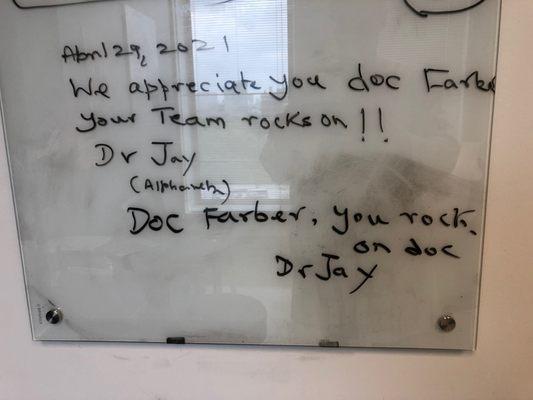 April 29, 2021
We appreciate you doc Farber
your Team rocks on !!
Dr Jay
Doc Farber, you rock
on doc
Dr Jay